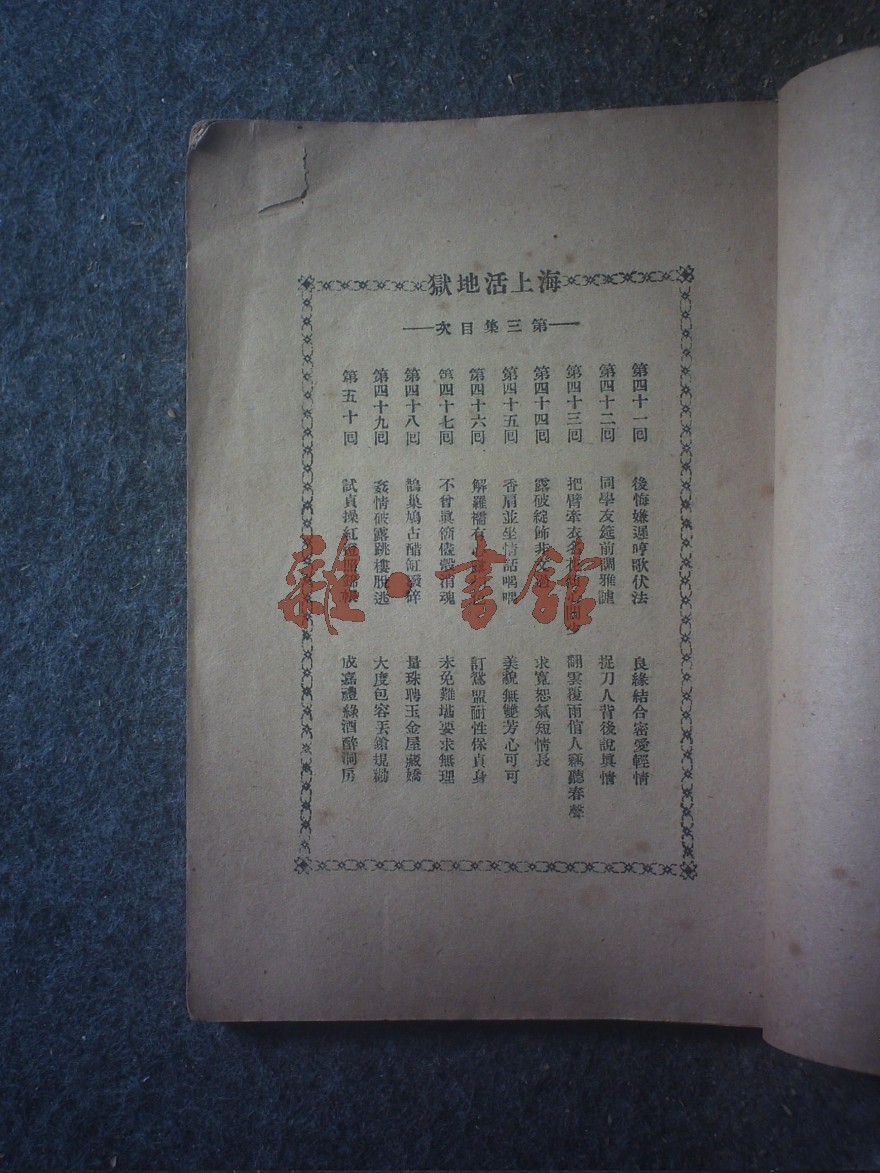 海上活地獄
第三集目次
第四十一回 後悔嫌遲哼歌伏法 良緣結合密愛輕情
第四十二回 同學友筵前調雅謔 捉刀人背後說眞情
第四十三回 把臂牽衣名 翻雲覆雨倌人竊聽春聲
第四十四回 露破綻飾非文過 求寬恕氣短情長
第四十五回 香肩並坐情話喁喁 美貌無雙芳心可可
第四十六回 解羅襦有心 訂鴛盟耐性保貞身
第四十七回 不曾眞箇儘彀消魂 未免難堪要求無理
第四十八回 鵲巢鳩占醋缸 碎 量珠聘玉金屋藏嬌
第四十九回 姦情破露跳樓脫逃 大度包容丟鎗規勸
第五十回 試貞操紅 成嘉禮綠酒醉洞房
雜·書館